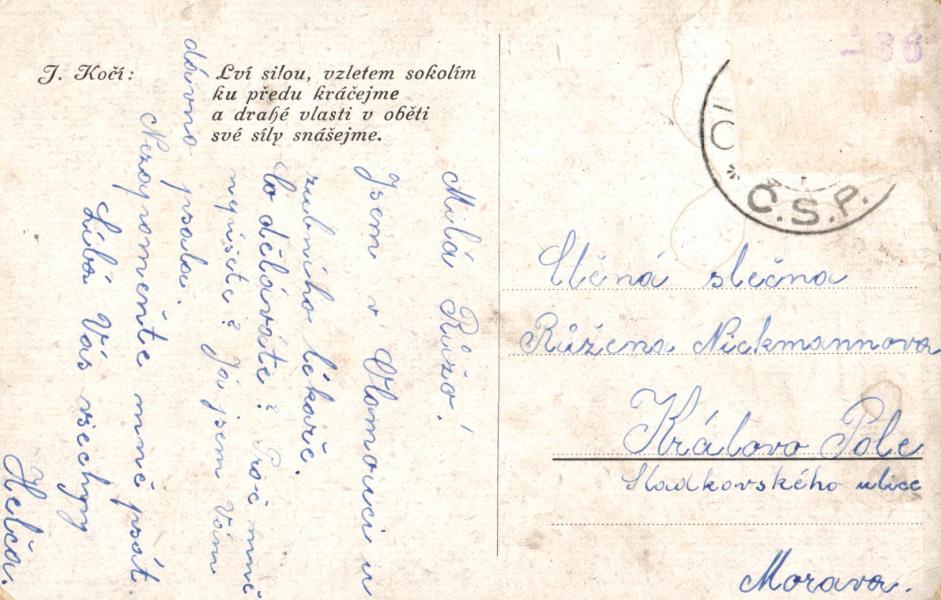 J. Kočí:
Lví silou, vzletem sokolím
ku předu kráčejme
a drahé vlasti v oběti
své síly snášejme.
Milá Růžo!
Jsem v Olomouci u
zubního lékaře.
Co děláváte? Proč mně
nepíšete? Já jsem Vám
dávno psala.
Nezapomeňte mně psát
Líbá Vás všechny
Helča.
- 36
Č.S.P.
Ctěná slečna
Růžena Nickmannova
Královo Pole
Sladkovského ulice
Morava.